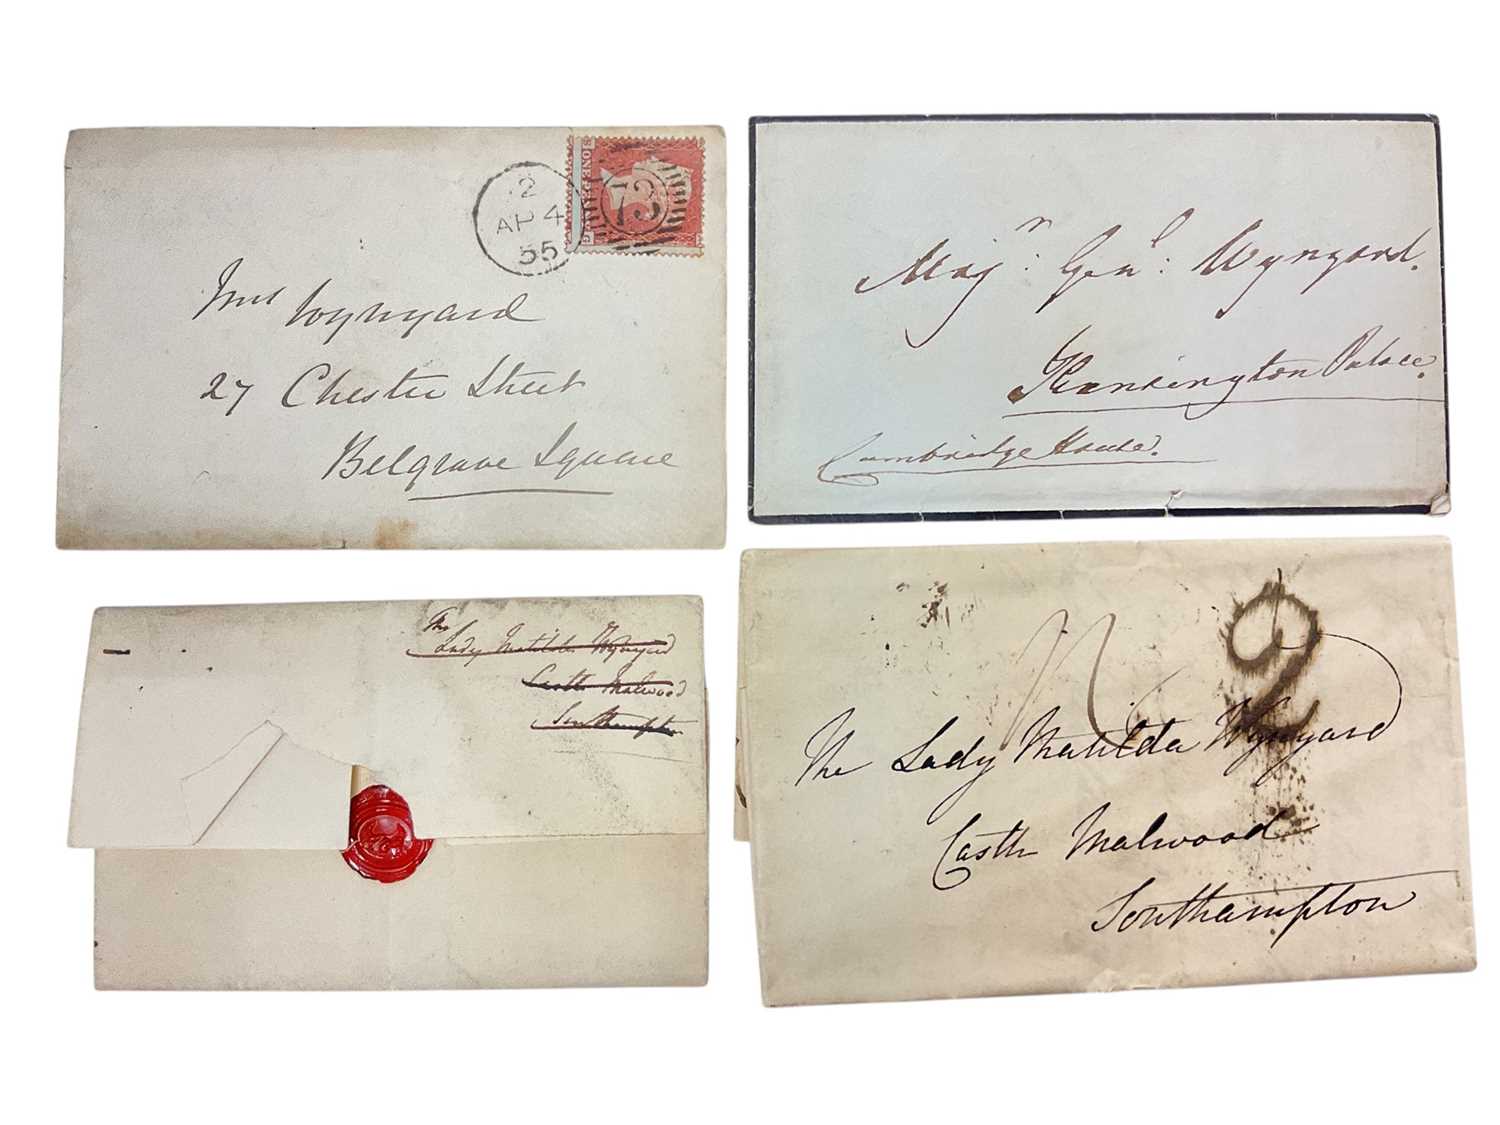 2
AP 4
55
73
ONE PENNY
Mrs Wynyard
27 Chester Street
Belgrave Square
Majr: Genl: Wynyard.
Kensington Palace.
Cambridge House.
The
Lady Matilda Wynyard
Castle Malwood
Southampton
2
The Lady Matilda Wynyard
Castle Malwood
Southampton